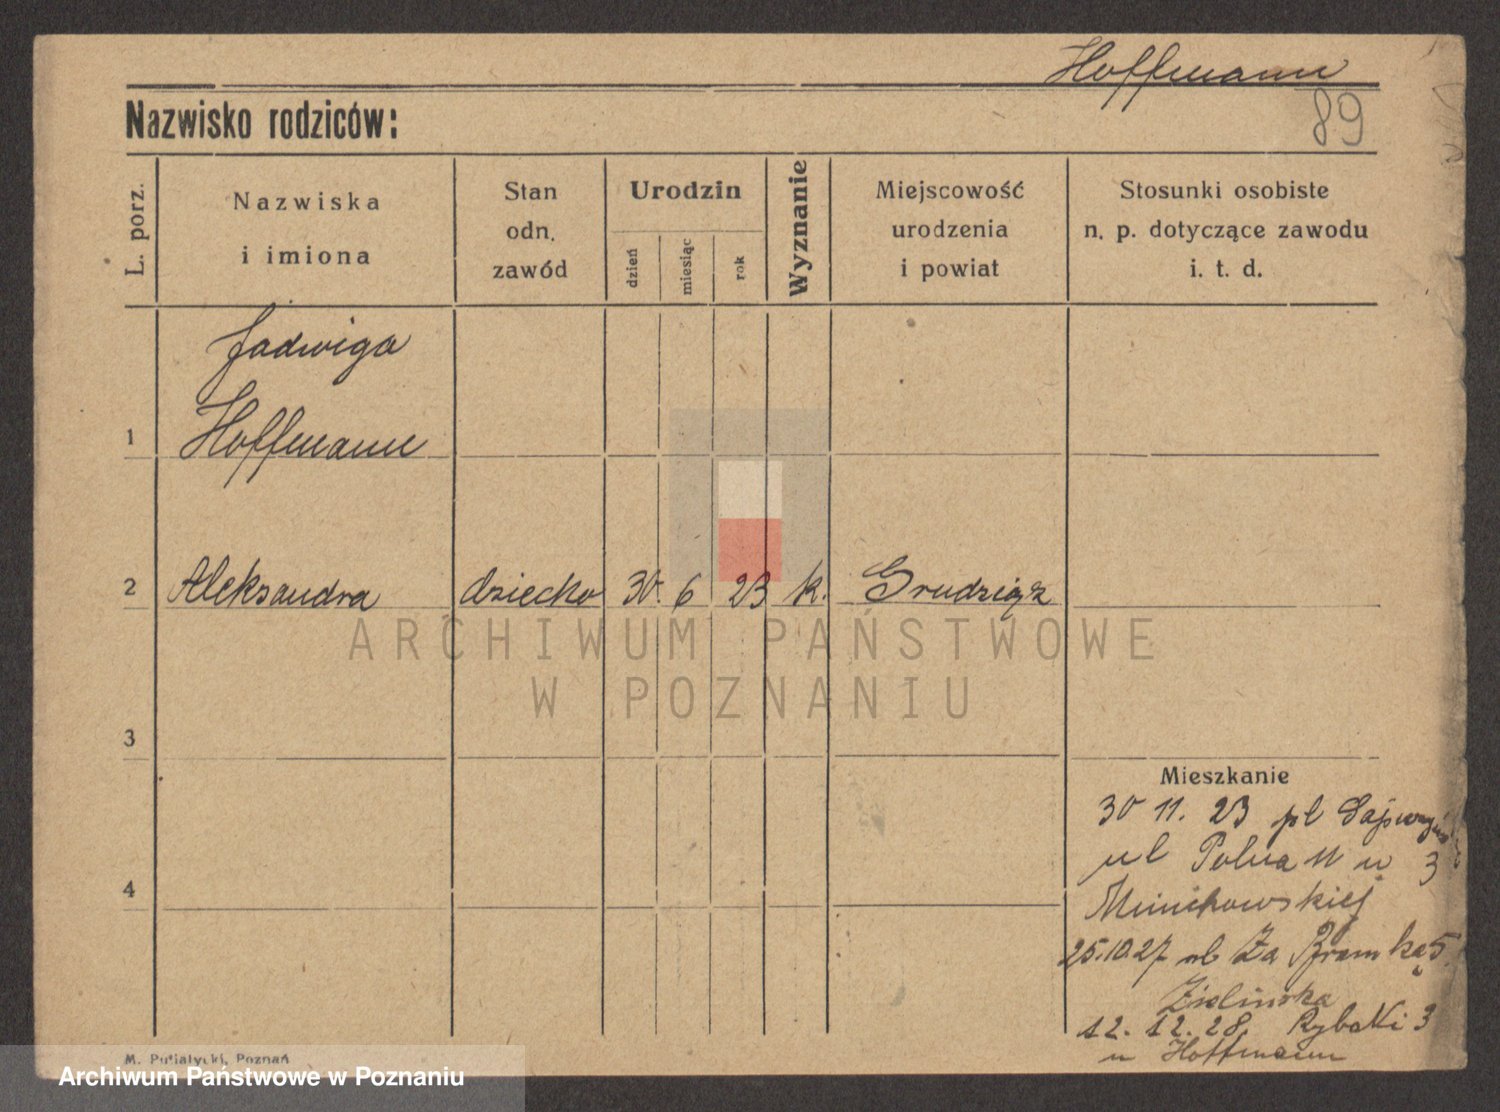 Hoffmann
89
Nazwisko rodziców:
L. porz.
Nazwiska
i imiona
Stan
odn.
zawód
Urodzin
dzień
miesiąc
rok
Wyznanie
Miejscowość
urodzenia
i powiat
Stosunki osobiste
n. p. dotyczące zawodu
i. t. d.
Jadwiga
1 Hoffmann
2 Aleksandra dziecko 30. 6 23 k. Grudziądz
ARCHIWUM PAŃSTWOWE
W POZNANIU
3
Mieszkanie
30 11. 23 pl
ul Polna 11 u 3
4
25.10.27 ul Za Bramką 5
Zielińska
12. 12. 28. Rybaki 3
u Hoffmann
M. Putiatycki, Poznań
Archiwum Państwowe w Poznaniu